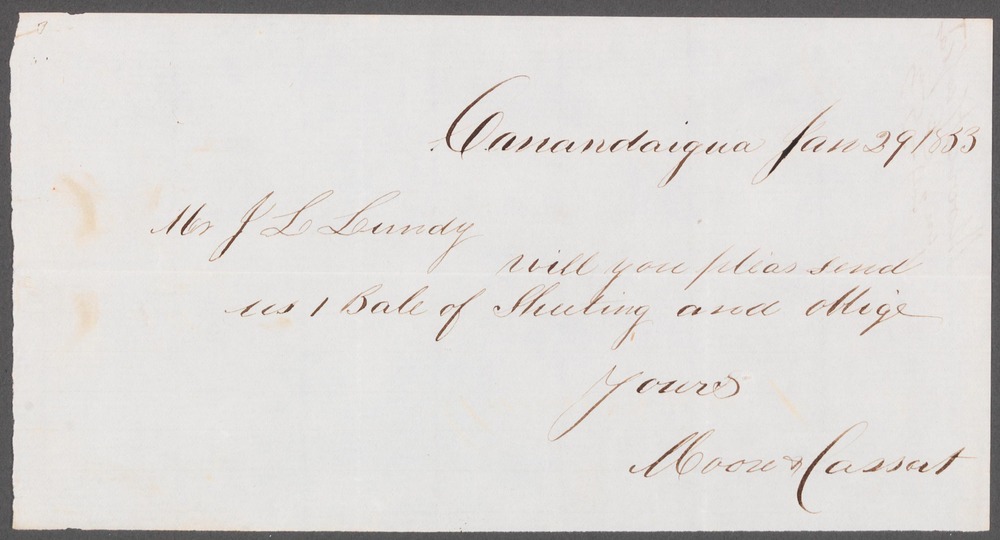 Canandaigua Jan 29 1853
Mr J L Lundy
will you pleas send
us 1 Bale of Sheeting and oblige
Yours
Moore & Cassort